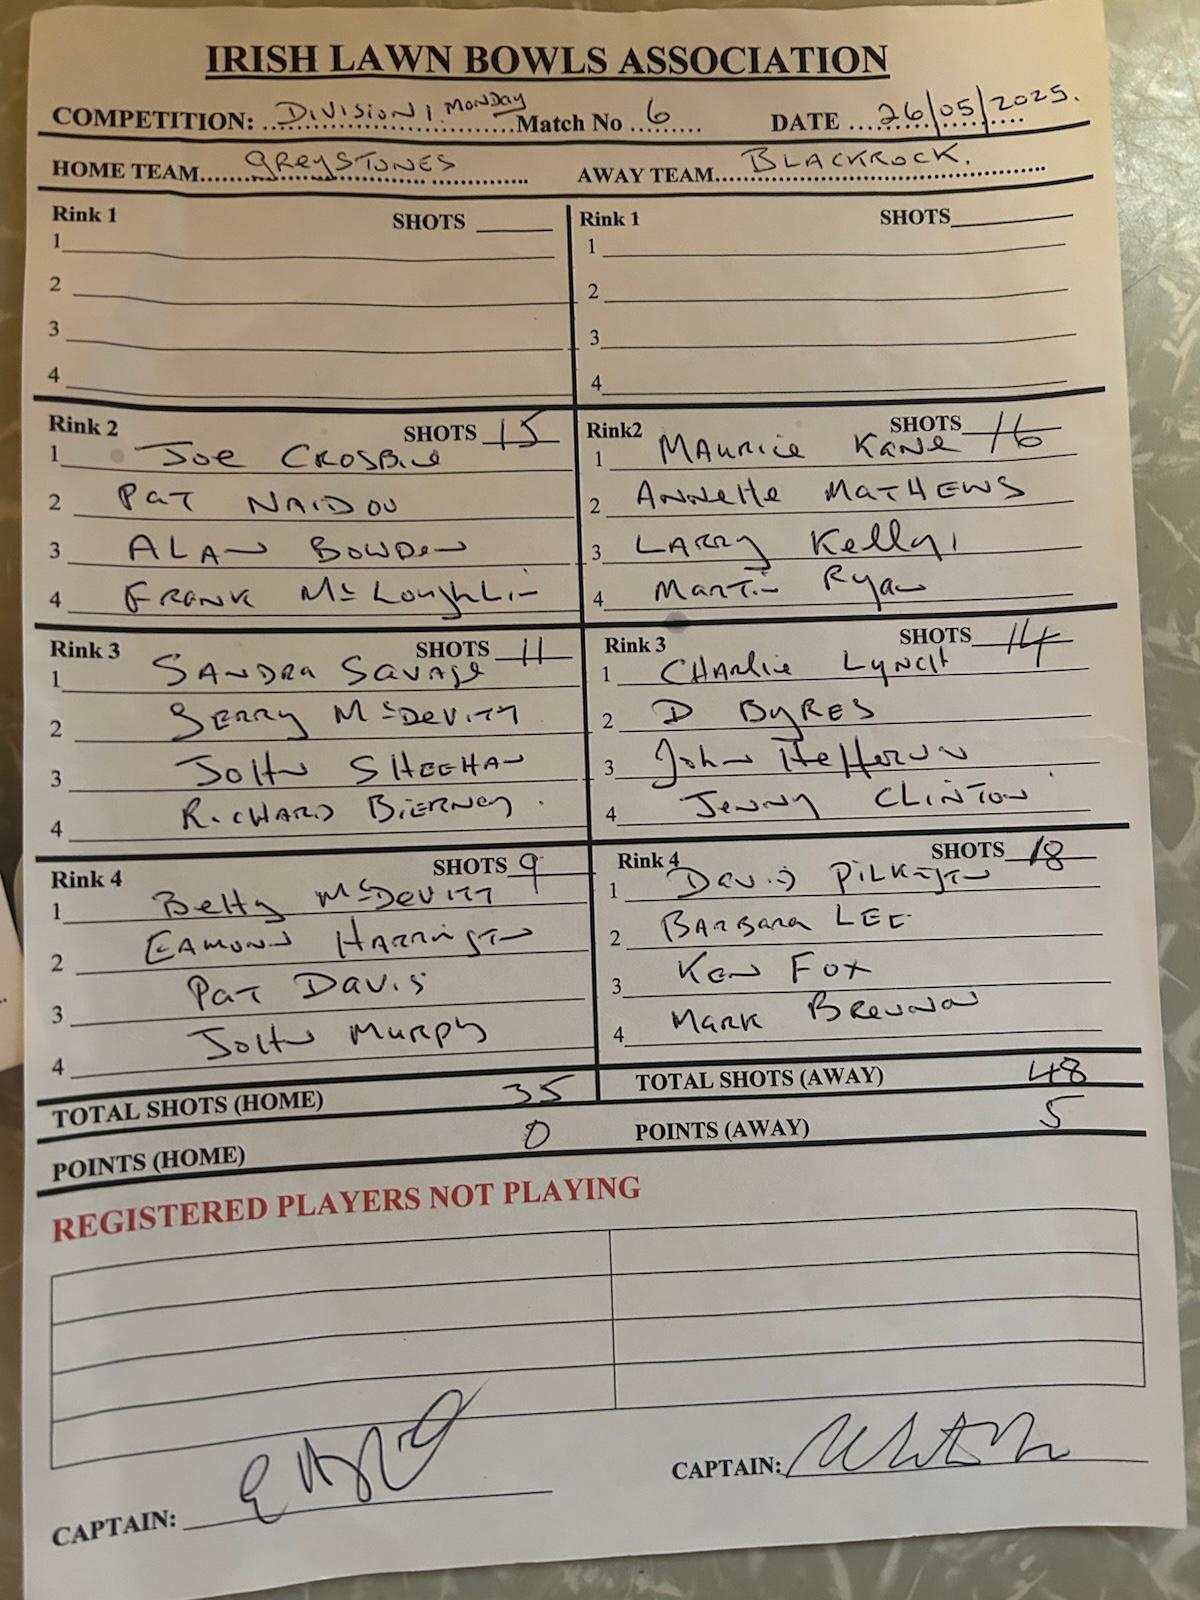 IRISH LAWN BOWLS ASSOCIATION
COMPETITION: DIVISION 1. MONDAY Match No 6 DATE 26/05/2025.
HOME TEAM GREYSTONES AWAY TEAM BLACKROCK.
Rink 1 SHOTS
1
2
3
4
Rink 1 SHOTS
1
2
3
4
Rink 2 SHOTS 15
1 JOE CROSBIE
2 PAT NAIDOU
3 ALAN BOWDEN
4 FRANK McLoughLin
Rink2 SHOTS 16
1 MAURICE KANE
2 ANNEttE MATHEWS
3 LARRy Kelly
4 MARTIN Ryan
Rink 3 SHOTS 11
1 SANDRA SAVAGE
2 GERRY McDEVITT
3 JOHN SHEEHAN
4 RICHARD BIERNEY.
Rink 3 SHOTS 14
1 CHARLIE LYNCH
2 D BYRES
3 John Heffernan
4 JENNY CLINTON
Rink 4 SHOTS 9
1 Betty McDEVITT
2 EAMONN HARRINGTON
3 PAT DAVIS
4 JOHN MURPHY
Rink 4 SHOTS 18
1 DAVID PILKINGTON
2 BARBARA LEE
3 KEN FOX
4 MARK BRENNAN
TOTAL SHOTS (HOME) 35 TOTAL SHOTS (AWAY) 48
POINTS (HOME) 0 POINTS (AWAY) 5
REGISTERED PLAYERS NOT PLAYING
CAPTAIN:
CAPTAIN: